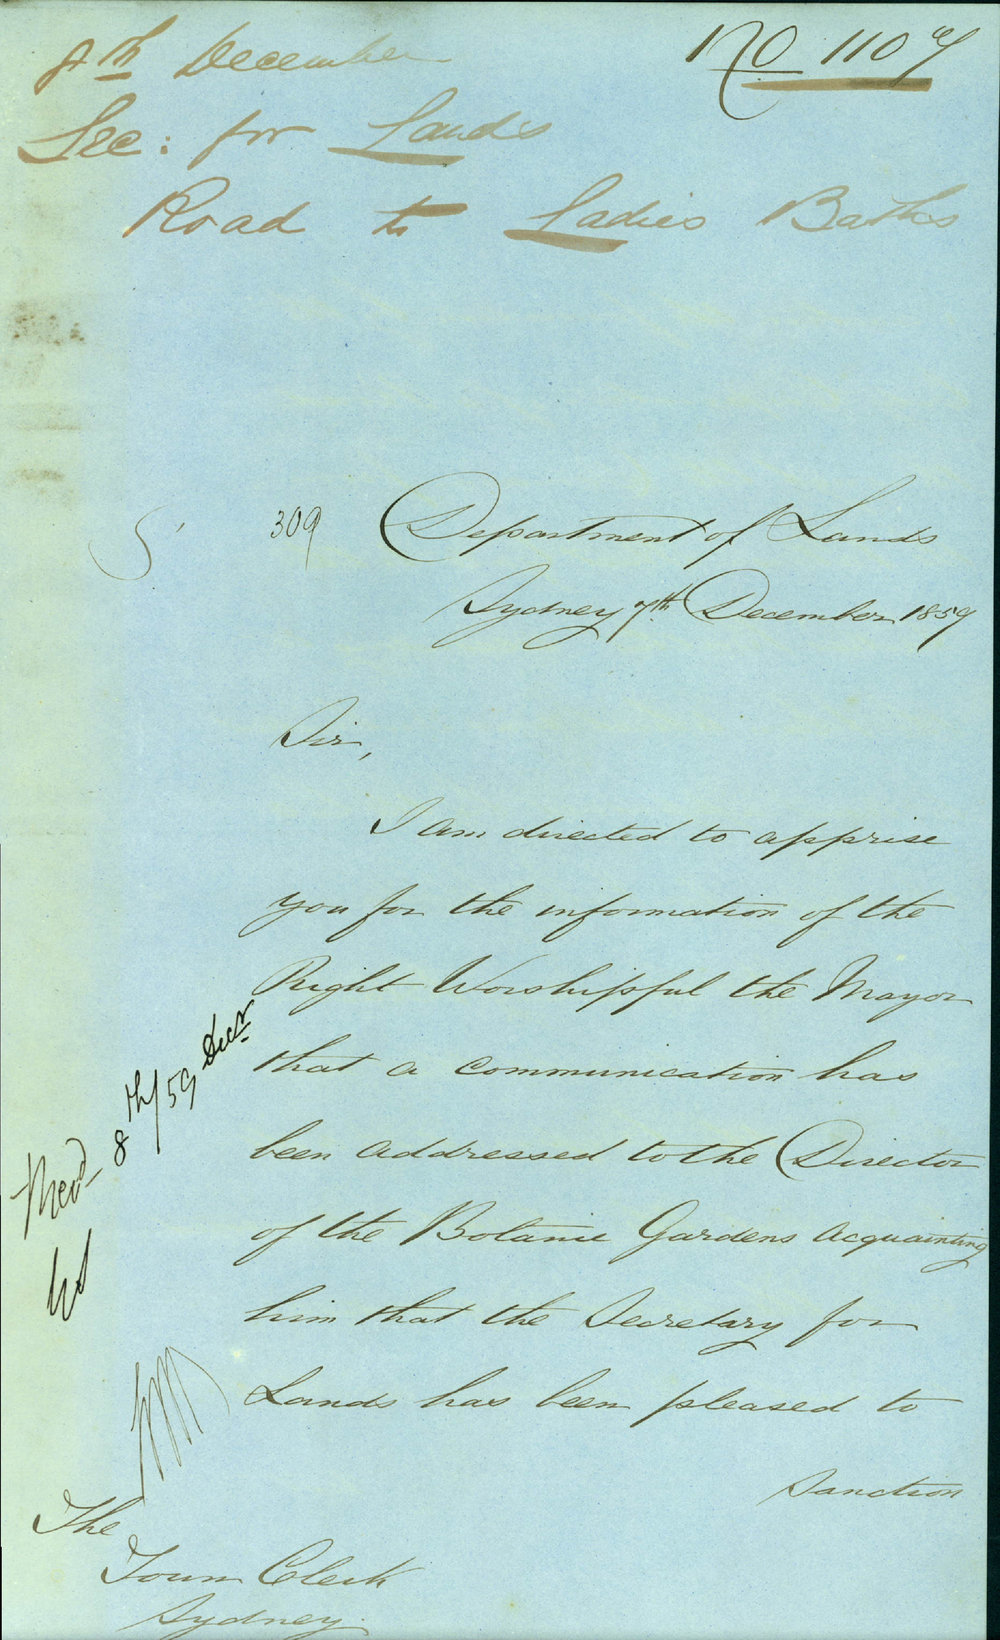 8th December
No 1107
Sec: for Lands
Road to Ladies Baths
309 Department of Lands
Sydney 7th December 1859
Sir,
I am directed to apprise
you for the information of the
Right Worshipful the Mayor
that a communication has
been addressed to the Director
of the Botanic Gardens acquainting
him that the Secretary for
Lands has been pleased to
sanction
Recd 8th/59 Decr
The
Town Clerk
Sydney.